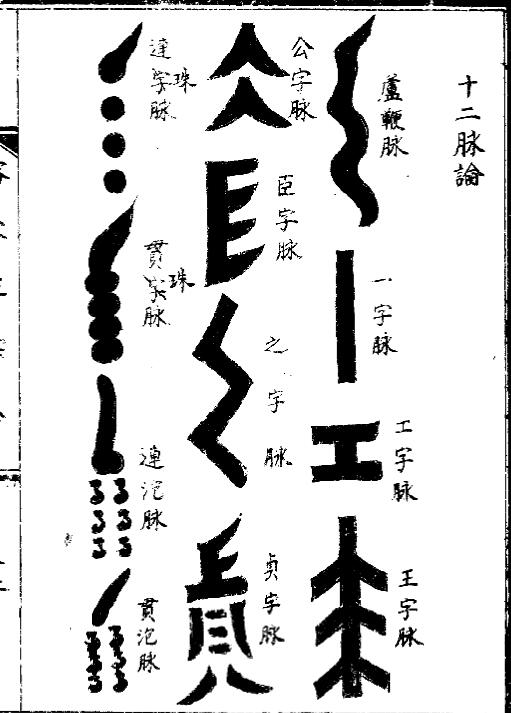 十二脉論
蘆鞭脉
一字脉
工字脉
王字脉
公字脉
臣字脉
之字脉
貞字脉
連珠脉
貫珠脉
連泡脉
貫泡脉